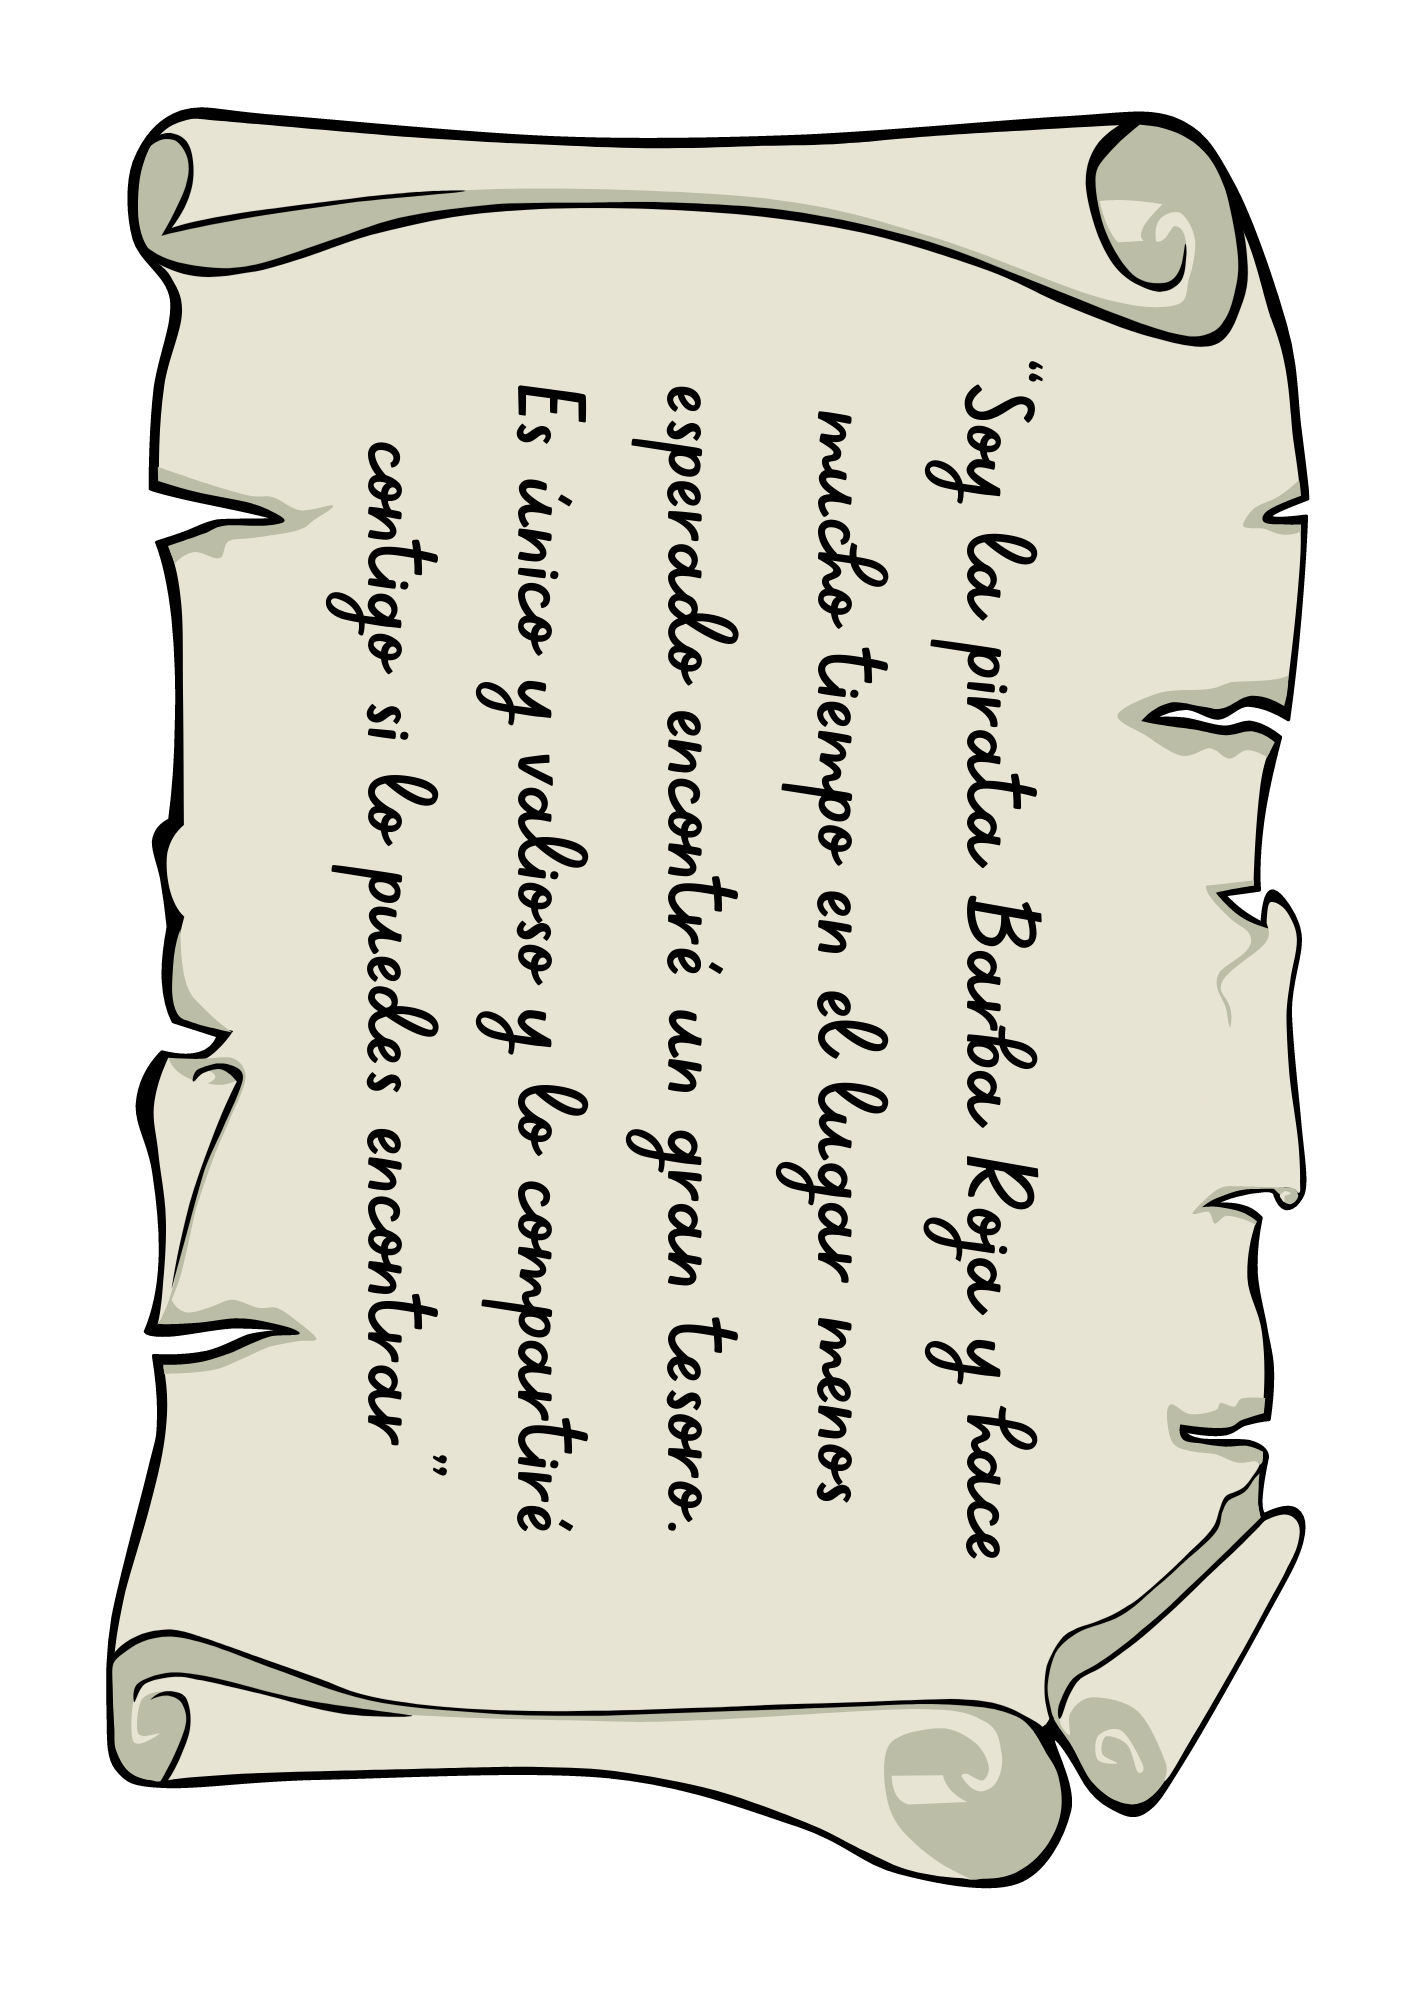 “Soy la pirata Barba Roja y hace
mucho tiempo en el lugar menos
esperado encontré un gran tesoro.
Es único y valioso y lo compartiré
contigo si lo puedes encontrar ”